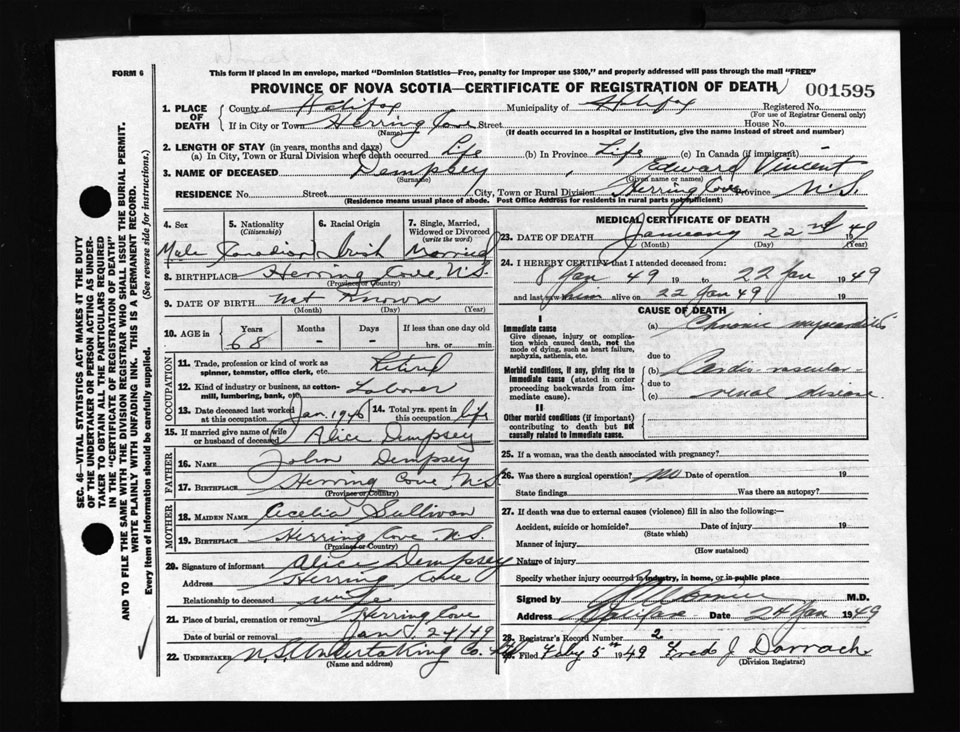 FORM 6
This form if placed in an envelope, marked "Dominion Statistics—Free, penalty for improper use $300," and properly addressed will pass through the mail "FREE"
PROVINCE OF NOVA SCOTIA—CERTIFICATE OF REGISTRATION OF DEATH 001595
1. PLACE OF DEATH
County of Halifax Municipality of Halifax Registered No.
(For use of Registrar General only)
If in City or Town Herring Cove Street House No.
(Name) (If death occurred in a hospital or institution, give the name instead of street and number)
2. LENGTH OF STAY (in years, months and days)
(a) In City, Town or Rural Division where death occurred Life (b) In Province Life (c) In Canada (if immigrant)
3. NAME OF DECEASED Dempsey, Edward Vincent
(Surname) (Given name or names)
RESIDENCE No. Street City, Town or Rural Division Herring Cove Province N.S.
(Residence means usual place of abode. Post Office Address for residents in rural parts not sufficient)
4. Sex 5. Nationality 6. Racial Origin 7. Single, Married, Widowed or Divorced
(Citizenship) (write the word)
Male Canadian Irish Married
8. BIRTHPLACE Herring Cove N.S.
(Province or Country)
9. DATE OF BIRTH not known
(Month) (Day) (Year)
10. AGE in Years Months Days If less than one day old
68 - - hrs. or min.
OCCUPATION
11. Trade, profession or kind of work as spinner, teamster, office clerk, etc. Retired
12. Kind of industry or business, as cotton-mill, lumbering, bank, etc. Laborer
13. Date deceased last worked at this occupation Jan. 1946 14. Total yrs. spent in this occupation life
15. If married give name of wife or husband of deceased Alice Dempsey
FATHER
16. NAME John Dempsey
17. BIRTHPLACE Herring Cove N.S.
(Province or Country)
MOTHER
18. MAIDEN NAME Cecelia Sullivan
19. BIRTHPLACE Herring Cove N.S.
(Province or Country)
20. Signature of informant Alice Dempsey
Address Herring Cove
Relationship to deceased wife
21. Place of burial, cremation or removal Herring Cove
Date of burial or removal Jan 24/49
22. UNDERTAKER N.S. Undertaking Co.
(Name and address)
MEDICAL CERTIFICATE OF DEATH
23. DATE OF DEATH January 22nd 1949
(Month) (Day) (Year)
24. I HEREBY CERTIFY that I attended deceased from:
8 Jan 49 19 to 22 Jan 1949
and last saw him alive on 22 Jan 49 19
CAUSE OF DEATH
I
Immediate cause (a) Chronic myocarditis
Give disease, injury or complication which caused death, not the mode of dying, such as heart failure, asphyxia, asthenia, etc.
due to
Morbid conditions, if any, giving rise to immediate cause (stated in order proceeding backwards from immediate cause).
(b) Cardio-vascular-
due to
(c) renal disease
II
Other morbid conditions (if important) contributing to death but not causally related to immediate cause.
25. If a woman, was the death associated with pregnancy?
26. Was there a surgical operation? no Date of operation 19
State findings Was there an autopsy?
27. If death was due to external causes (violence) fill in also the following:—
Accident, suicide or homicide? Date of injury 19
(State which)
Manner of injury
(How sustained)
Nature of injury
Specify whether injury occurred in industry, in home, or in public place
Signed by M.D.
Address Halifax Date 24 Jan 1949
28. Registrar's Record Number 2
Filed Feby 5th 1949 Fred J Darrach
(Division Registrar)
SEC. 46—VITAL STATISTICS ACT MAKES IT THE DUTY
OF THE UNDERTAKER OR PERSON ACTING AS UNDER-
TAKER TO OBTAIN ALL THE PARTICULARS REQUIRED
IN THE "CERTIFICATE OF REGISTRATION OF DEATH"
AND TO FILE THE SAME WITH THE DIVISION REGISTRAR WHO SHALL ISSUE THE BURIAL PERMIT.
WRITE PLAINLY WITH UNFADING INK. THIS IS A PERMANENT RECORD.
Every item of information should be carefully supplied. (See reverse side for instructions.)